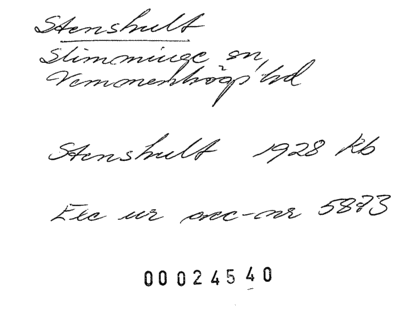 Stenshult
Slimminge sn,
Vemmenhögs hd
Stenshult 1928 Kb
Exc ur acc-nr 5873
00024540